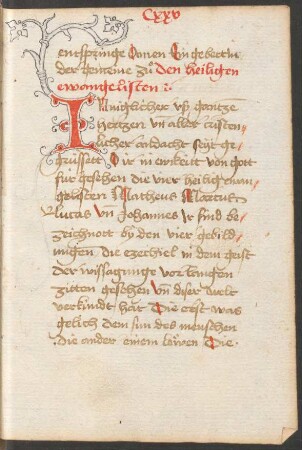 Cxxv
entspringe Donen Ein gebett in
der gemeine zů den heiligen
ewangelisten :
Inniglicher vß gantzem
hertzen vn̄ aller cristen
licher andacht seyt ge
grüssett Die in ewikeit von gott
für gesehen die vier heiligen ewan
gelisten Matheus Marcus
Lucas vn̄ Johannes Ir sind be
zeichnott by den vier gebild
nungen die ezechiel in dem geist
der wissagunge vor langen
zitten gesehen vn̄ diser welt
verkindt hät Die erst was
gelich dem sun des menschen
die ander einem löwen Die